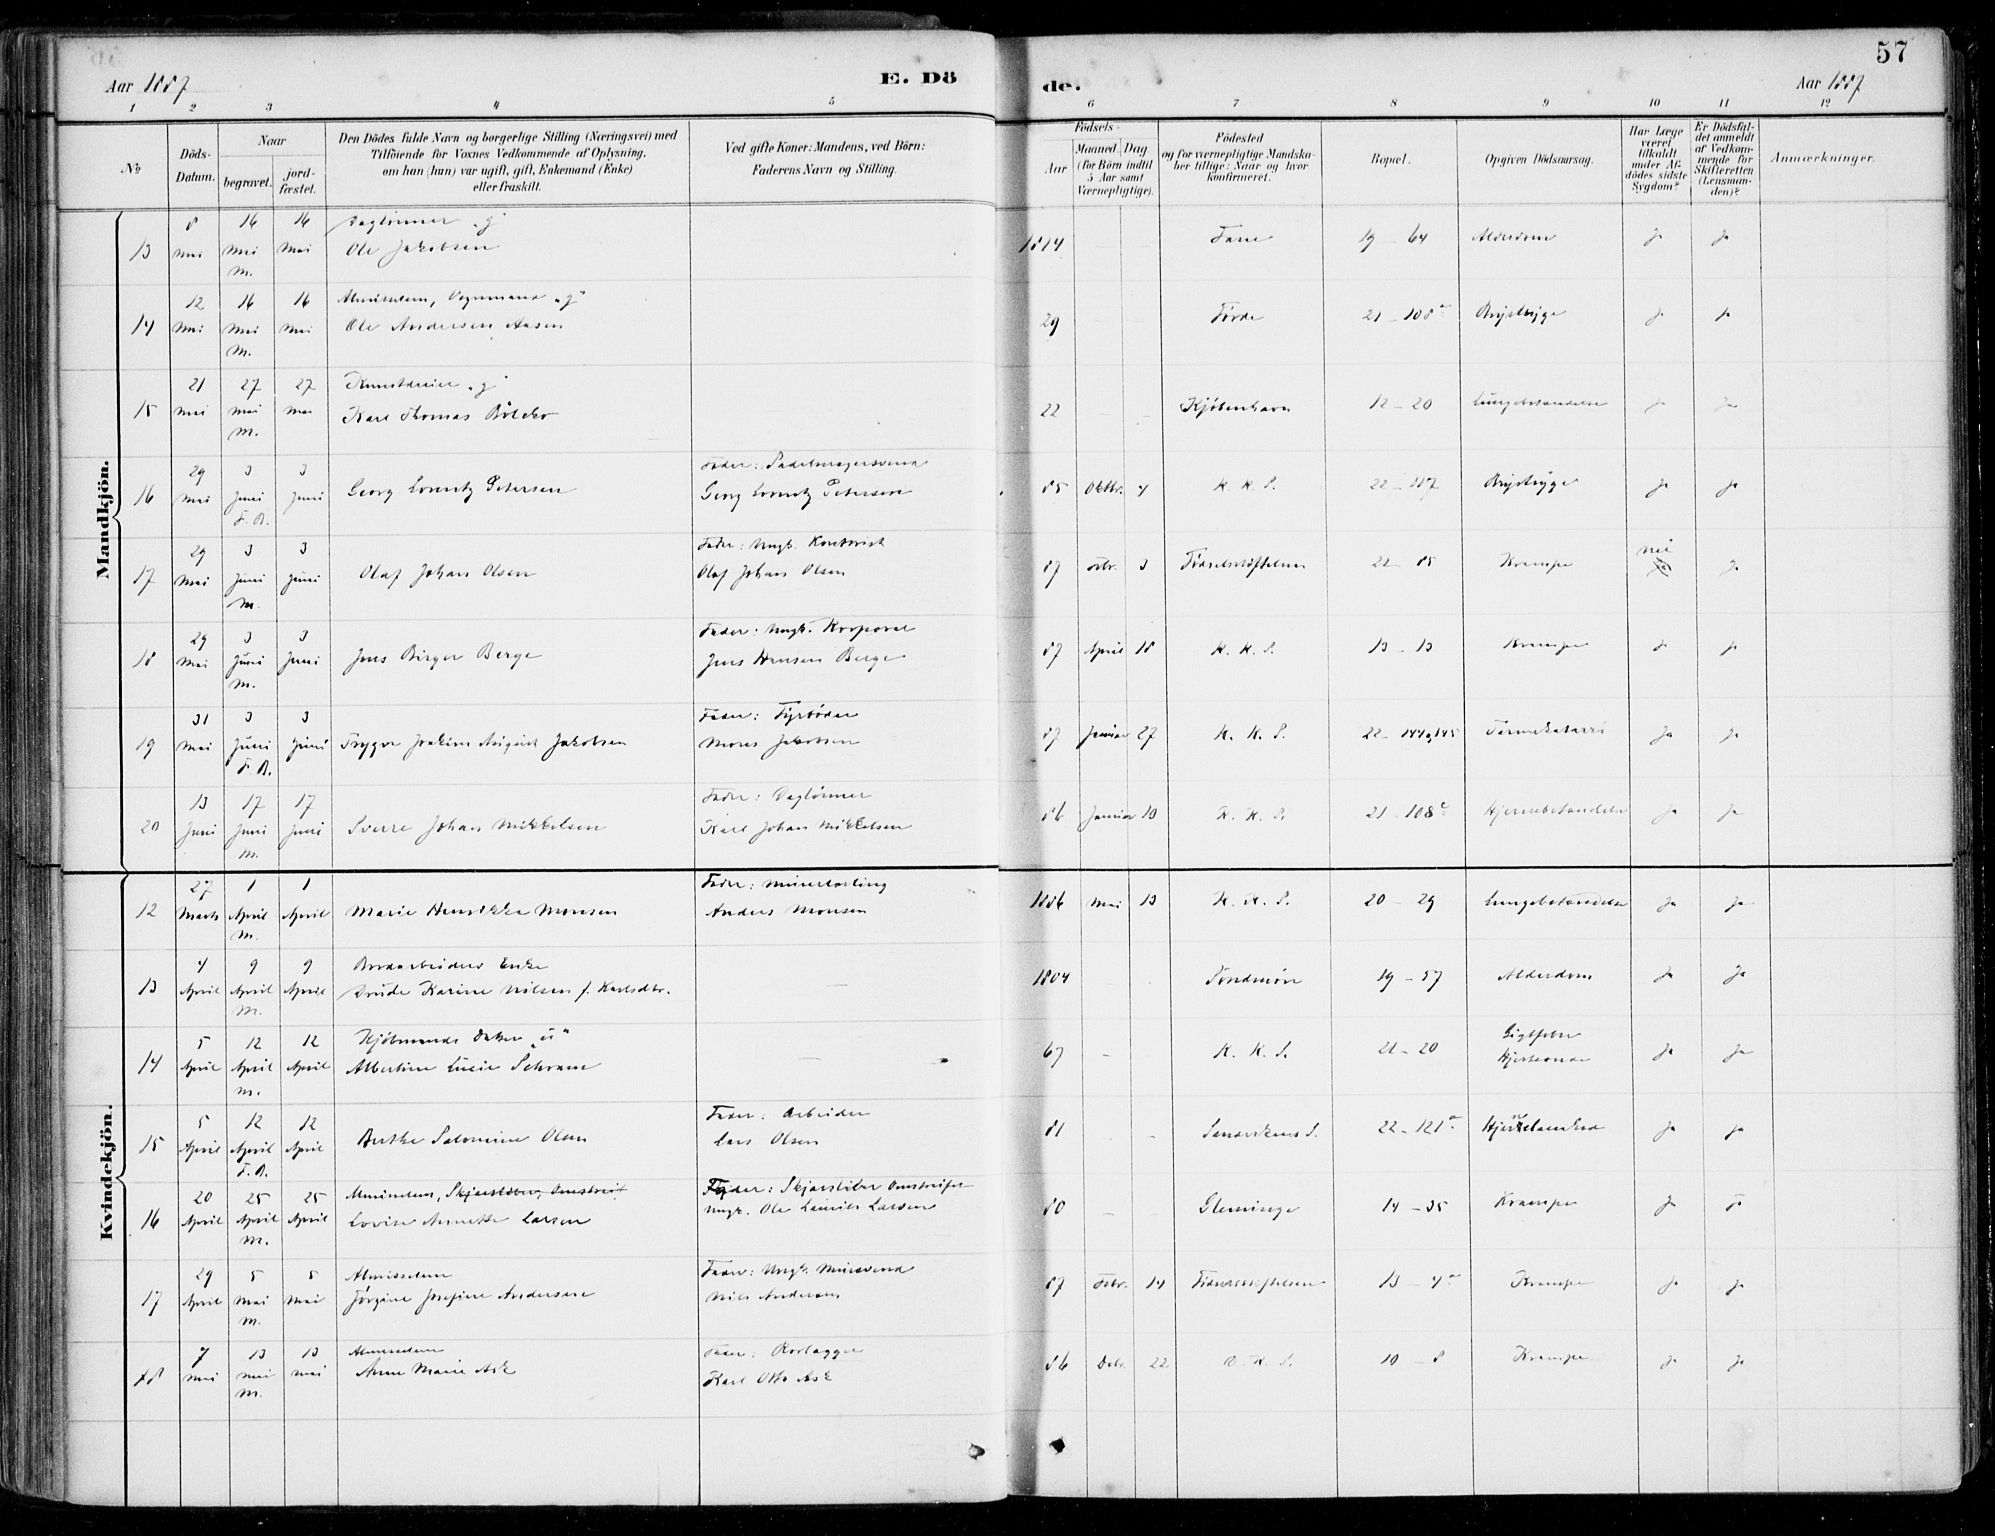 57
Aar 1887
E. Dö
de.
Aar 1887
1 2 3 4 5 6 7 8 9 10 11 12
No
Döds-Datum.
Naar
begravet.
jord-fæstet.
Den Dödes fulde Navn og borgerlige Stilling (Næringsvei) med
Tilföiende for Voxnes Vedkommende af Oplysning,
om han (hun) var ugift, gift, Enkemand (Enke)
eller fraskilt.
Ved gifte Koner: Mandens, ved Börn:
Faderens Navn og Stilling.
Födsels-
Aar
Maaned. Dag
(for Börn indtil
5 Aar samt
Værnepligtige).
Födested
og for værnepligtige Mandska-
ber tillige: Naar og hvor
konfirmeret.
Bopæl.
Opgiven Dödsaarsag.
Har Læge
været
tilkaldt
under Af-
dödes sidste
Sygdom?
Er Dödsfal-
det anmeldt
af Vedkom-
mende for
Skifteretten
(Lensman-
den)?
Anmærkninger.
Mandkjön.
8 16 16 Daglönner "g"
13 Mai Mai Mai Ole Jakobsen 1814 Fane 19 - 64 Alderdom Ja Ja
M.
12 16 16 Almisselem, "g"
14 Mai Mai Mai Ole Andersen Aasen 29 Förde 21 - 108 a Brystsyge Ja Ja
M.
21 27 27 "g"
15 Mai Mai Mai Karl Thomas 22 Kjöbenhavn 12 - 20 Lungebetændelse Ja Ja
M.
29 3 3 Fader: Sadelmagersvend
16 Mai Juni Juni Georg Lorentz Petersen Georg Lorentz Petersen 85 Oktbr. 4 K. K. S. 22 - 117 Brystsyge Ja Ja
F. B.
29 3 3 Fader: Ungk. Kontorist nei
17 Mai Juni Juni Olaf Johan Olsen Olaf Johan Olsen 87 3 Födselsstiftelsen 22 - 85 Krampe Ja
M.
29 3 3 Fader: Ungk. Korporal
18 Mai Juni Juni Jens Birger Berge Jens Hansen Berge 87 April 18 K. K. S. 13 - 13 Krampe Ja Ja
M.
31 3 3 Fader: Fyrböder
19 Mai Juni Juni Trygve Joakim August Jakobsen Mons Jakobsen 87 Januar 27 K. K. S. 22 - 144 145 Tarmekatarrh Ja Ja
F. B.
13 17 17 Fader: Daglönner
20 Juni Juni Juni Sverre Johan Mikkelsen Karl Johan Mikkelsen 86 Januar 10 K. K. S. 21 - 108 c Hjernebetændelse Ja Ja
M.
Kvindekjön.
27 1 1 Fader:
12 Marts April April Marie Henrikke Monsen Anders Monsen 1886 Mai 13 K. K. S. 20 - 29 Lungebetændelse Ja Ja
M.
4 9 9 Enke
13 April April April Drude Karine Nilsen f. Karlsdtr. — 1804 Söndmöre 19 - 57 Alderdom Ja Ja
M.
5 12 12 Kjöbmands Datter "u" Gigtfeber
14 April April April Albertine Lucie Schram — 67 - K. K. S. 21 - 20 Hjerteonde Ja Ja
M.
5 12 12 Fader: Arbeider
15 April April April Berthe Salomine Olsen Lars Olsen 81 Sandvikens S. 22 - 121 a Ja Ja
F. B.
20 25 25 Almisselem, Fader: Skjærsliber Omstreifer
16 April April April Lovise Annette Larsen Ungk. Ole Laurits Larsen 80 14 - 35 Krampe Ja Ja
M.
29 5 5 Almisselem Fader: Ungk. Mursvend
17 April Mai Mai Jörgine Josefine Andersen Nils Andersen 87 Febr. 14 Födselsstiftelsen 13 - 4 a Krampe Ja Ja
M.
7 13 13 Almisselem Fader:
18 Mai Mai Mai Anne Marie Ask Karl Otto Ask 86 22 D. K. S. 10 - 8 Krampe Ja Ja
M.